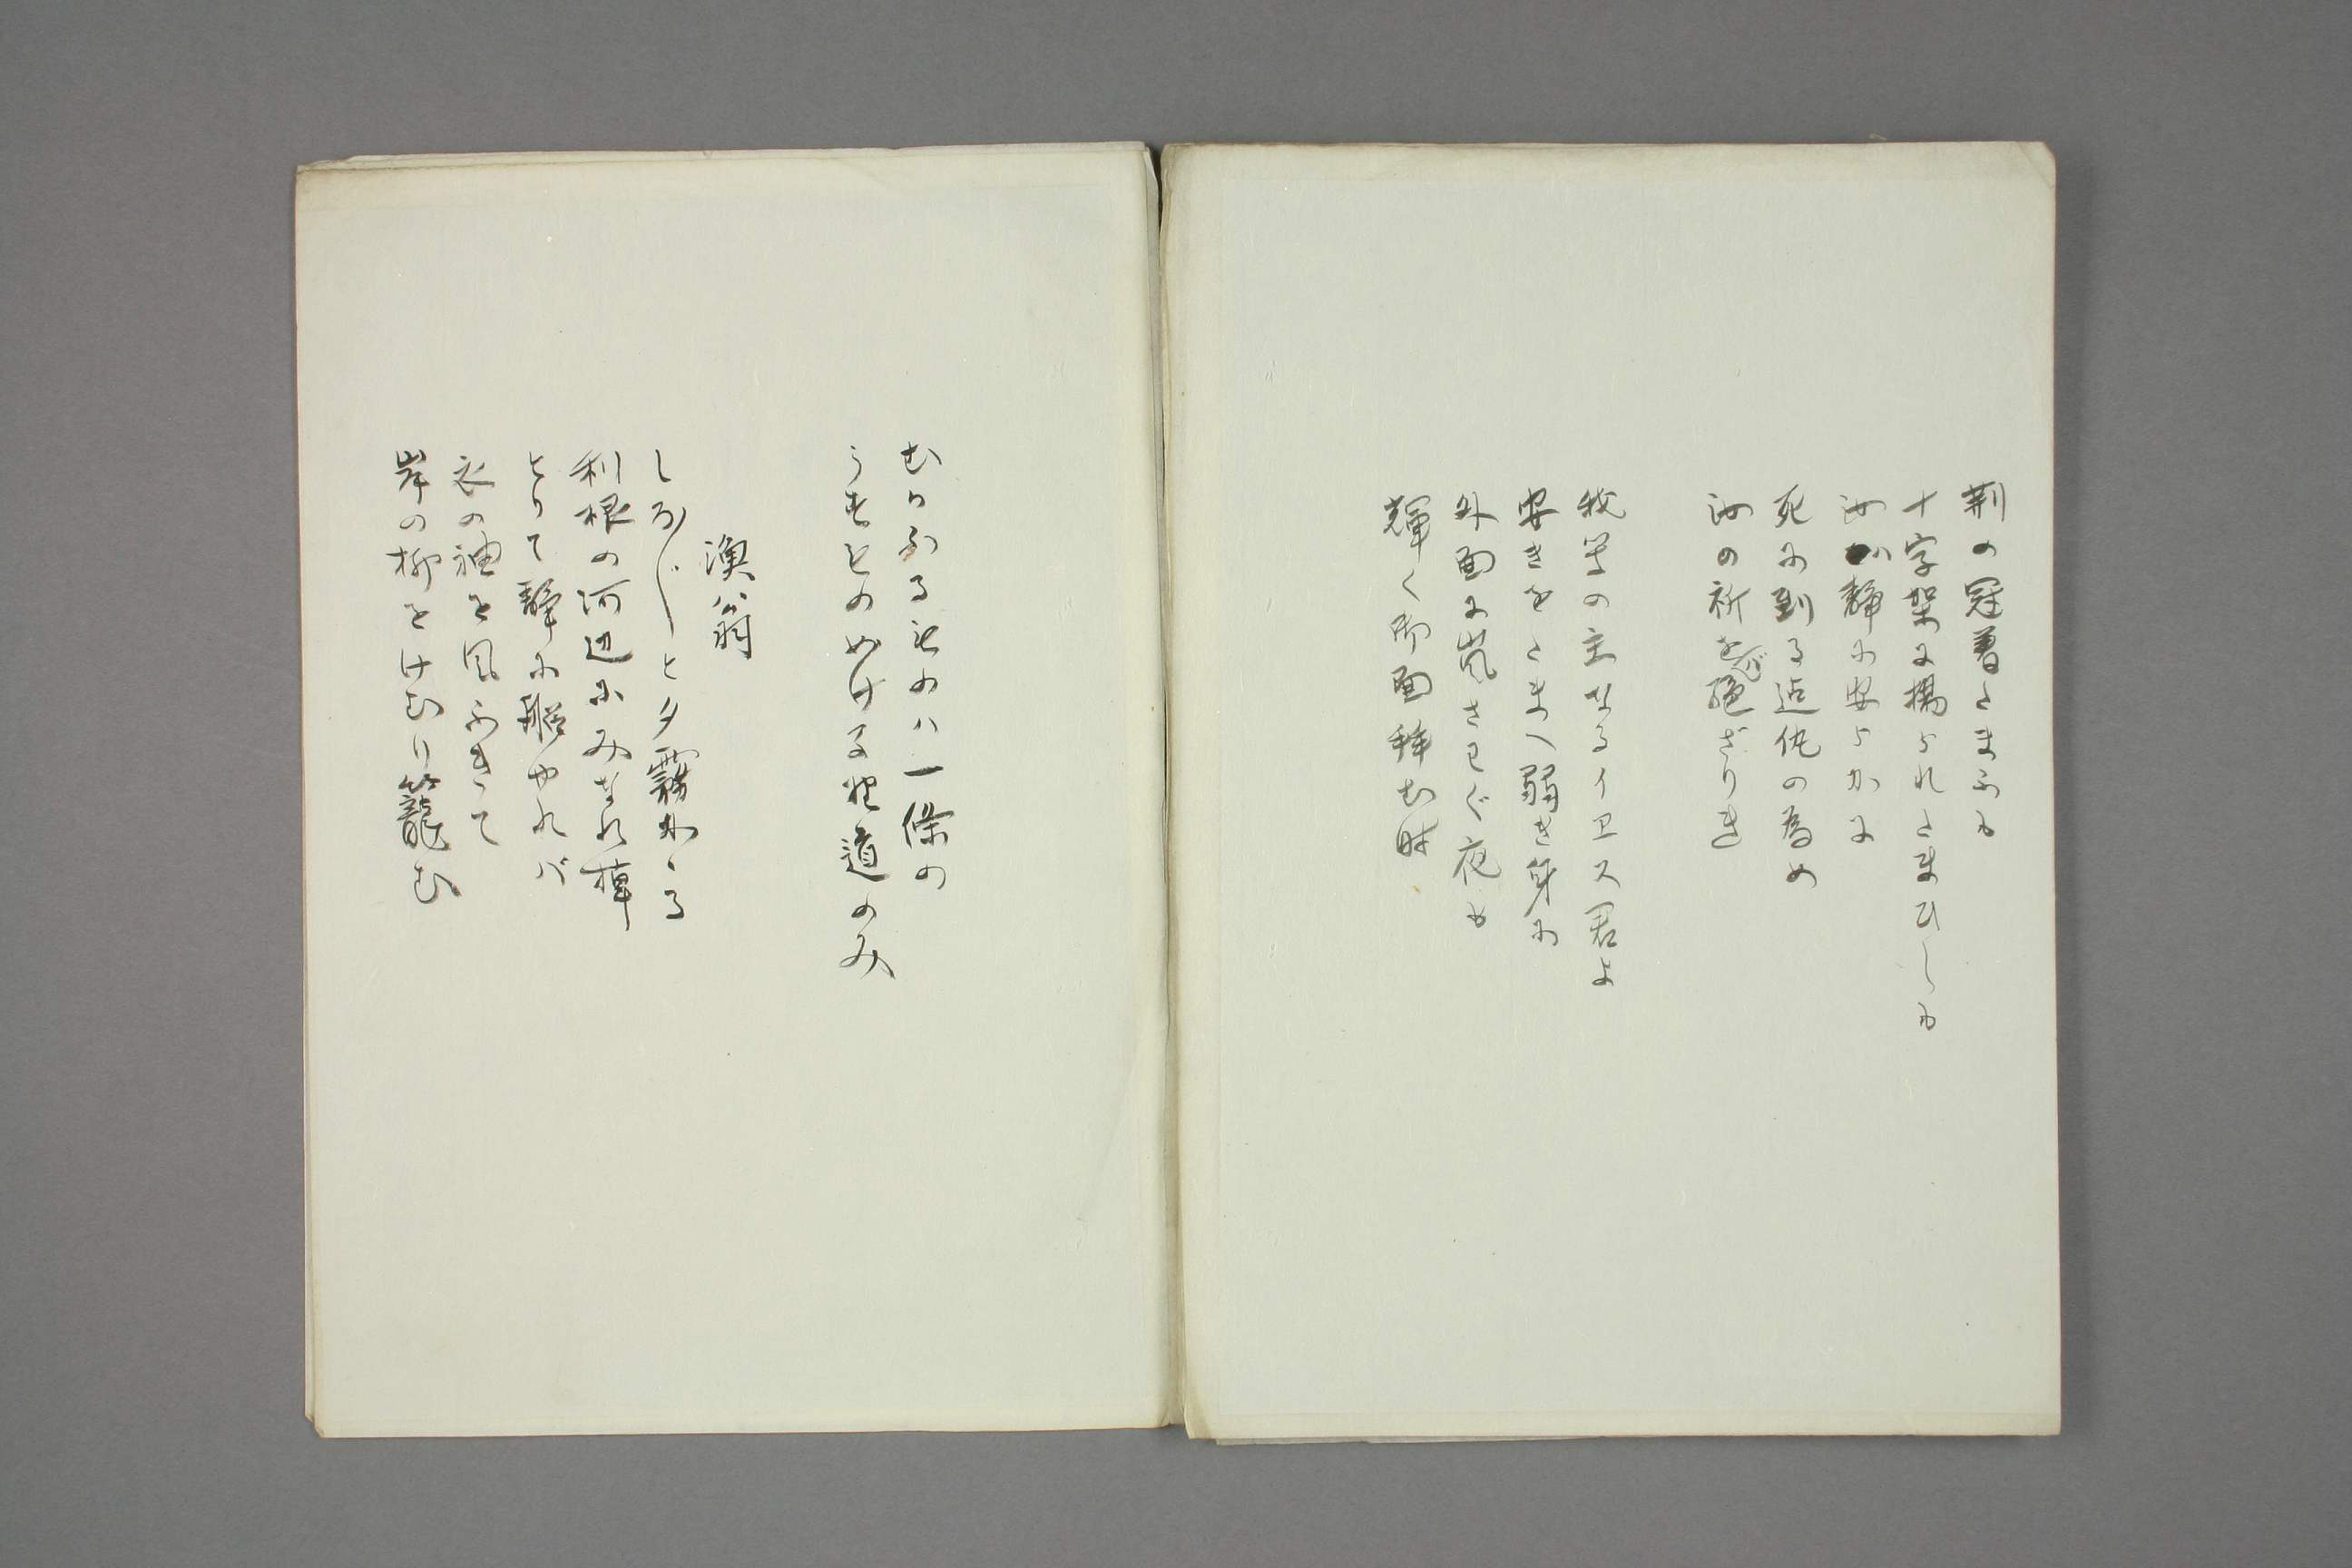 荊の冠着たまふも
十字架に擧られたまひしも
汝が静に安らかに
死に到る迠他の為め
汝の祈をば絶ざりき
我等の主なるイエス君よ
安きをたまへ弱き身に
外面に嵐さわぐ夜も
輝く御面拝む時
むかふるものハ一條の
うすものぬける野道のみ
漁翁
しろ〴〵と夕霧かゝる
利根の河辺にみなれ棹
とりて静に艇やれバ
衣の袖を風ふきて
岸の柳をけむり籠む